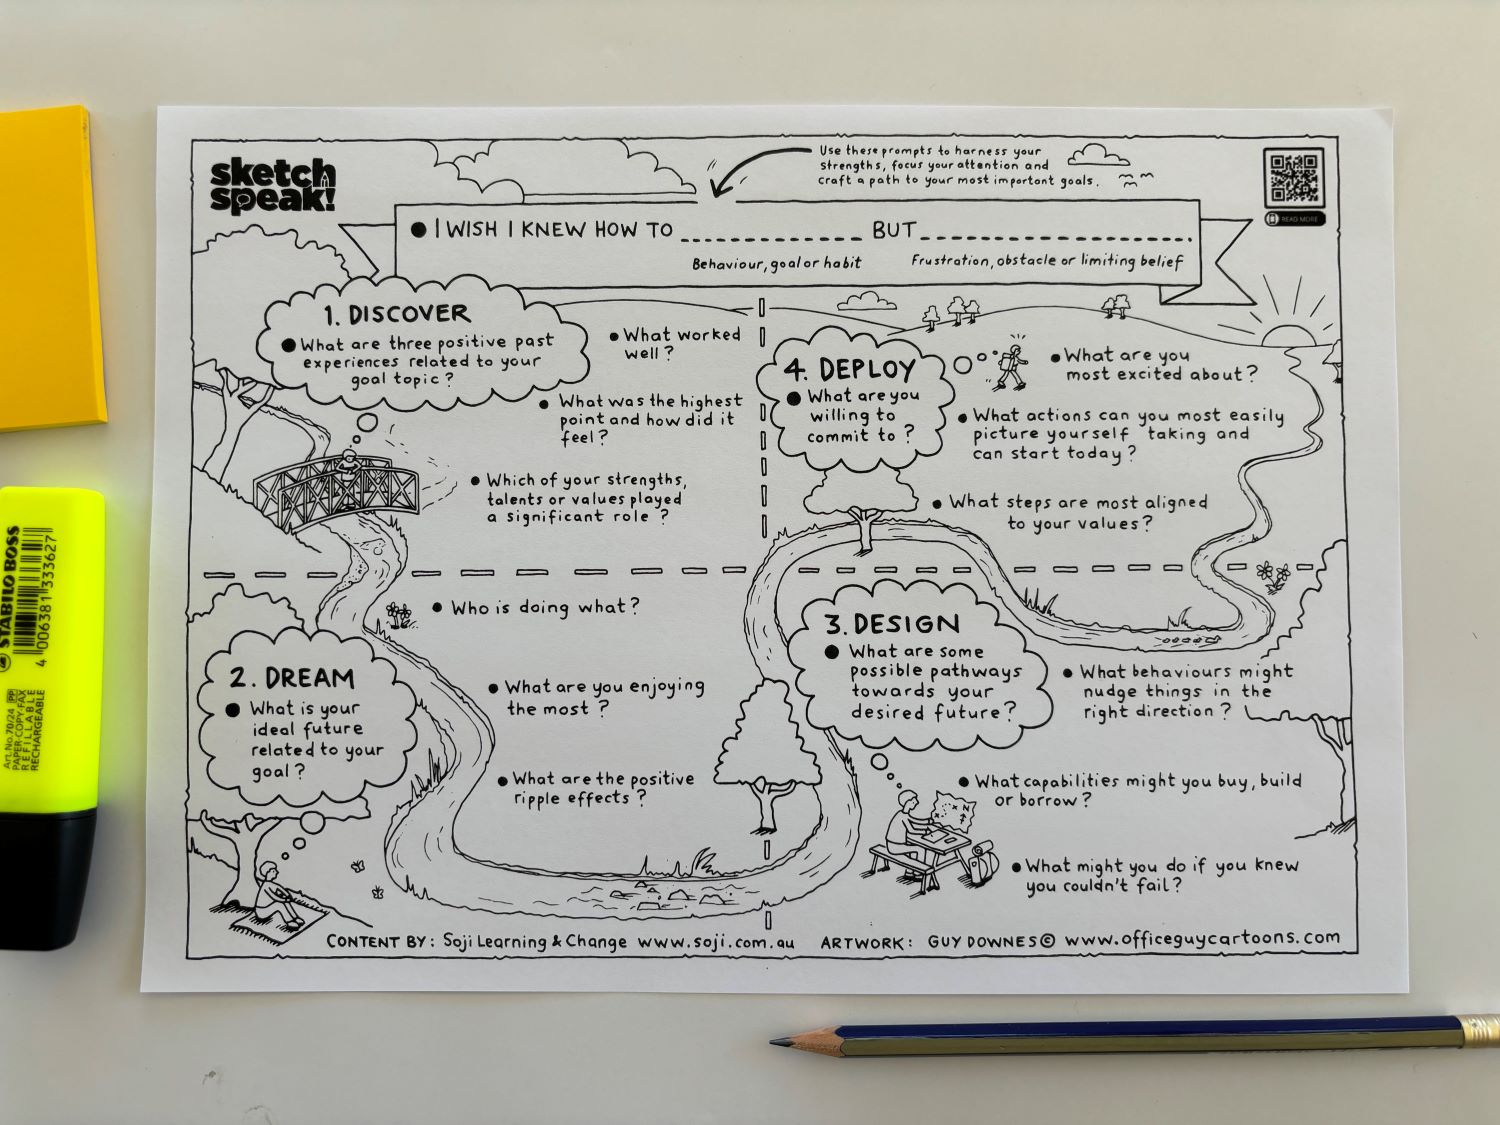 sketch
speak!
Use these prompts to harness your
strengths, focus your attention and
craft a path to your most important goals.
READ MORE
I WISH I KNEW HOW TO BUT
Behaviour, goal or habit
Frustration, obstacle or limiting belief
1. DISCOVER
What are three positive past
experiences related to your
goal topic?
What worked
well?
What was the highest
point and how did it
feel?
Which of your strengths,
talents or values played
a significant role?
4. DEPLOY
What are you
willing to
commit to?
What are you
most excited about?
What actions can you most easily
picture yourself taking and
can start today?
What steps are most aligned
to your values?
2. DREAM
What is your
ideal future
related to your
goal?
Who is doing what?
What are you enjoying
the most?
What are the positive
ripple effects?
3. DESIGN
What are some
possible pathways
towards your
desired future?
What behaviours might
nudge things in the
right direction?
What capabilities might you buy, build
or borrow?
N
What might you do if you knew
you couldn't fail?
CONTENT BY: Soji Learning & Change www.soji.com.au ARTWORK: GUY DOWNES © www.officeguycartoons.com
STABILO BOSS
4 006381 333627
Art.No.70/24 PP
PAPER-COPY-FAX
REFILLABLE
RECHARGEABLE